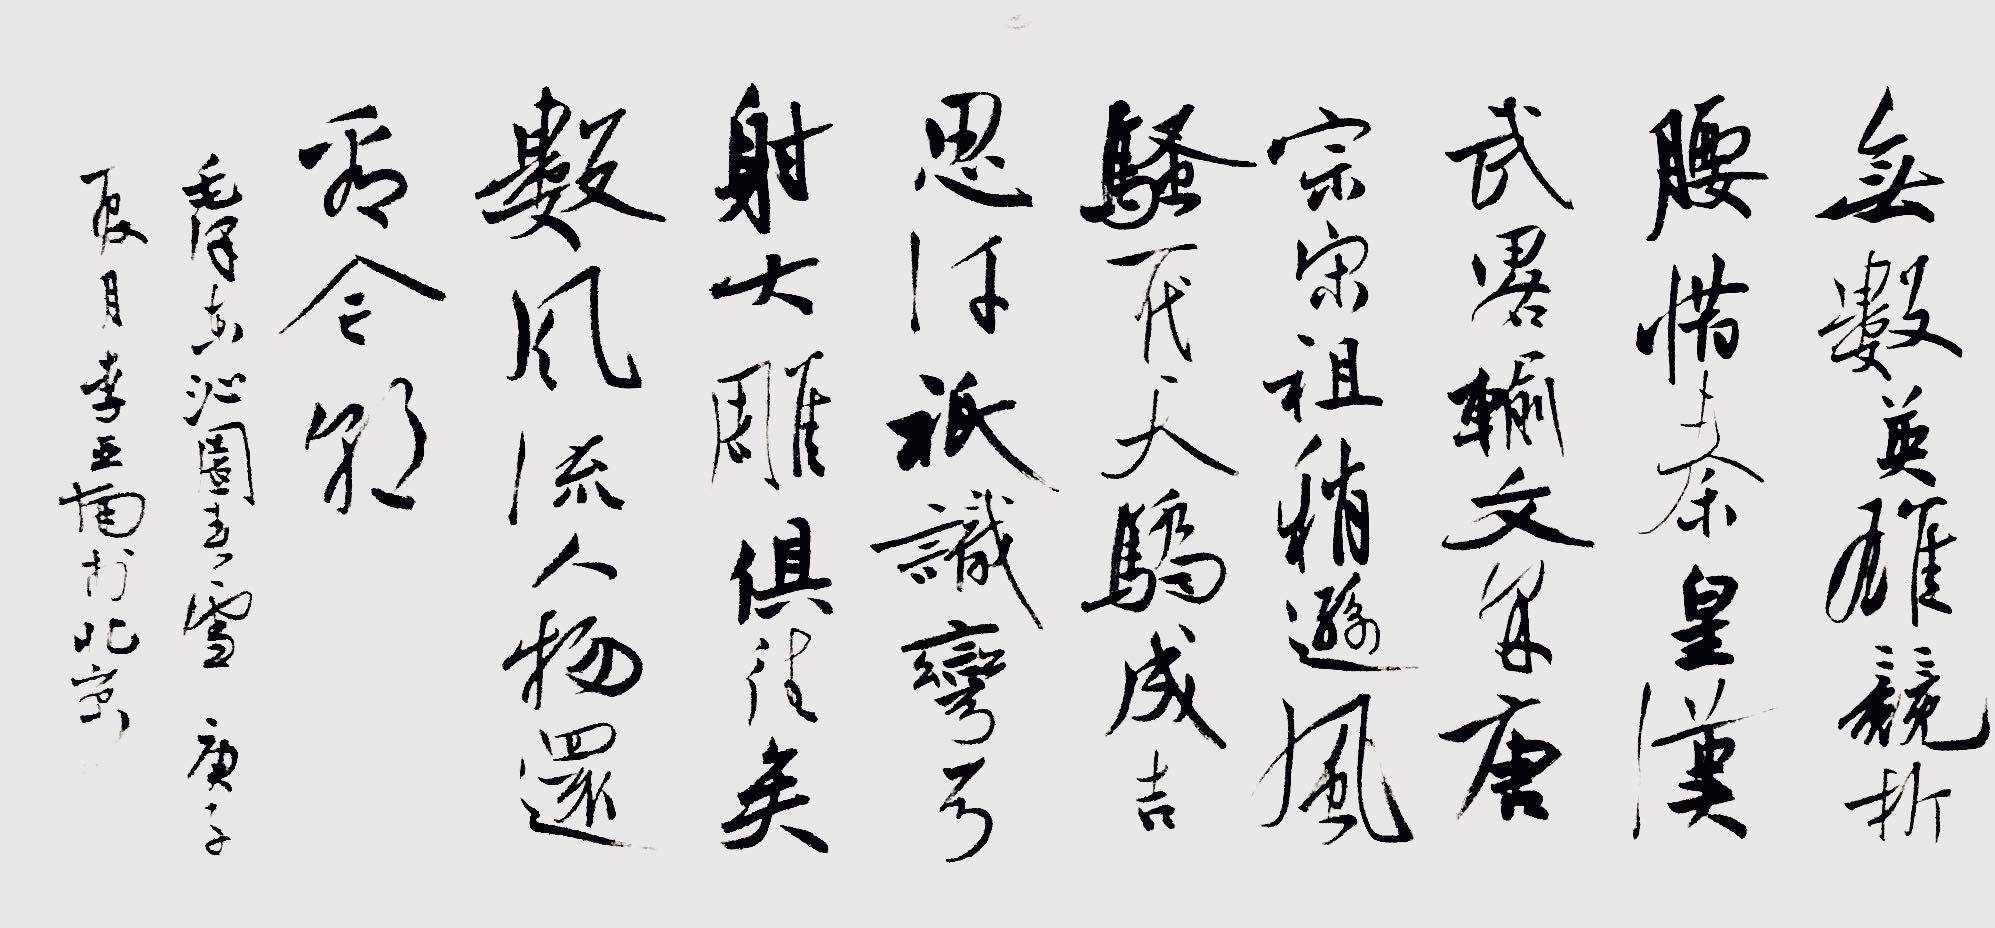 無數英雄競折
腰惜秦皇漢
武畧輸文采唐
宗宋祖稍遜風
騷一代天驕成吉
思汗祇識彎弓
射大雕俱往矣
數風流人物還
看今朝
毛澤東沁園春雪 庚子
夏月李五楠於北京